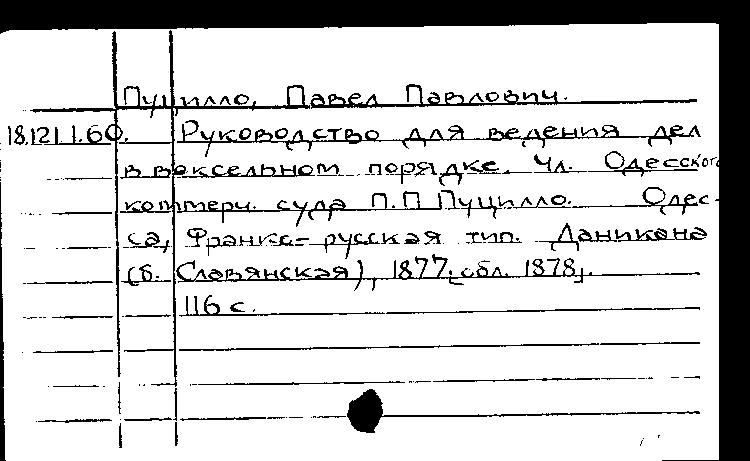 Пуцилло, Павел Павлович.
18.121.1.60. Руководство для ведения дел
в вексельном порядке. Чл. Одесского
коммерч. суда П.П Пуцилло. Одес-
са, Франко-русская тип. Даникана
(б. Славянская), 1877[обл. 1878].
116 с.